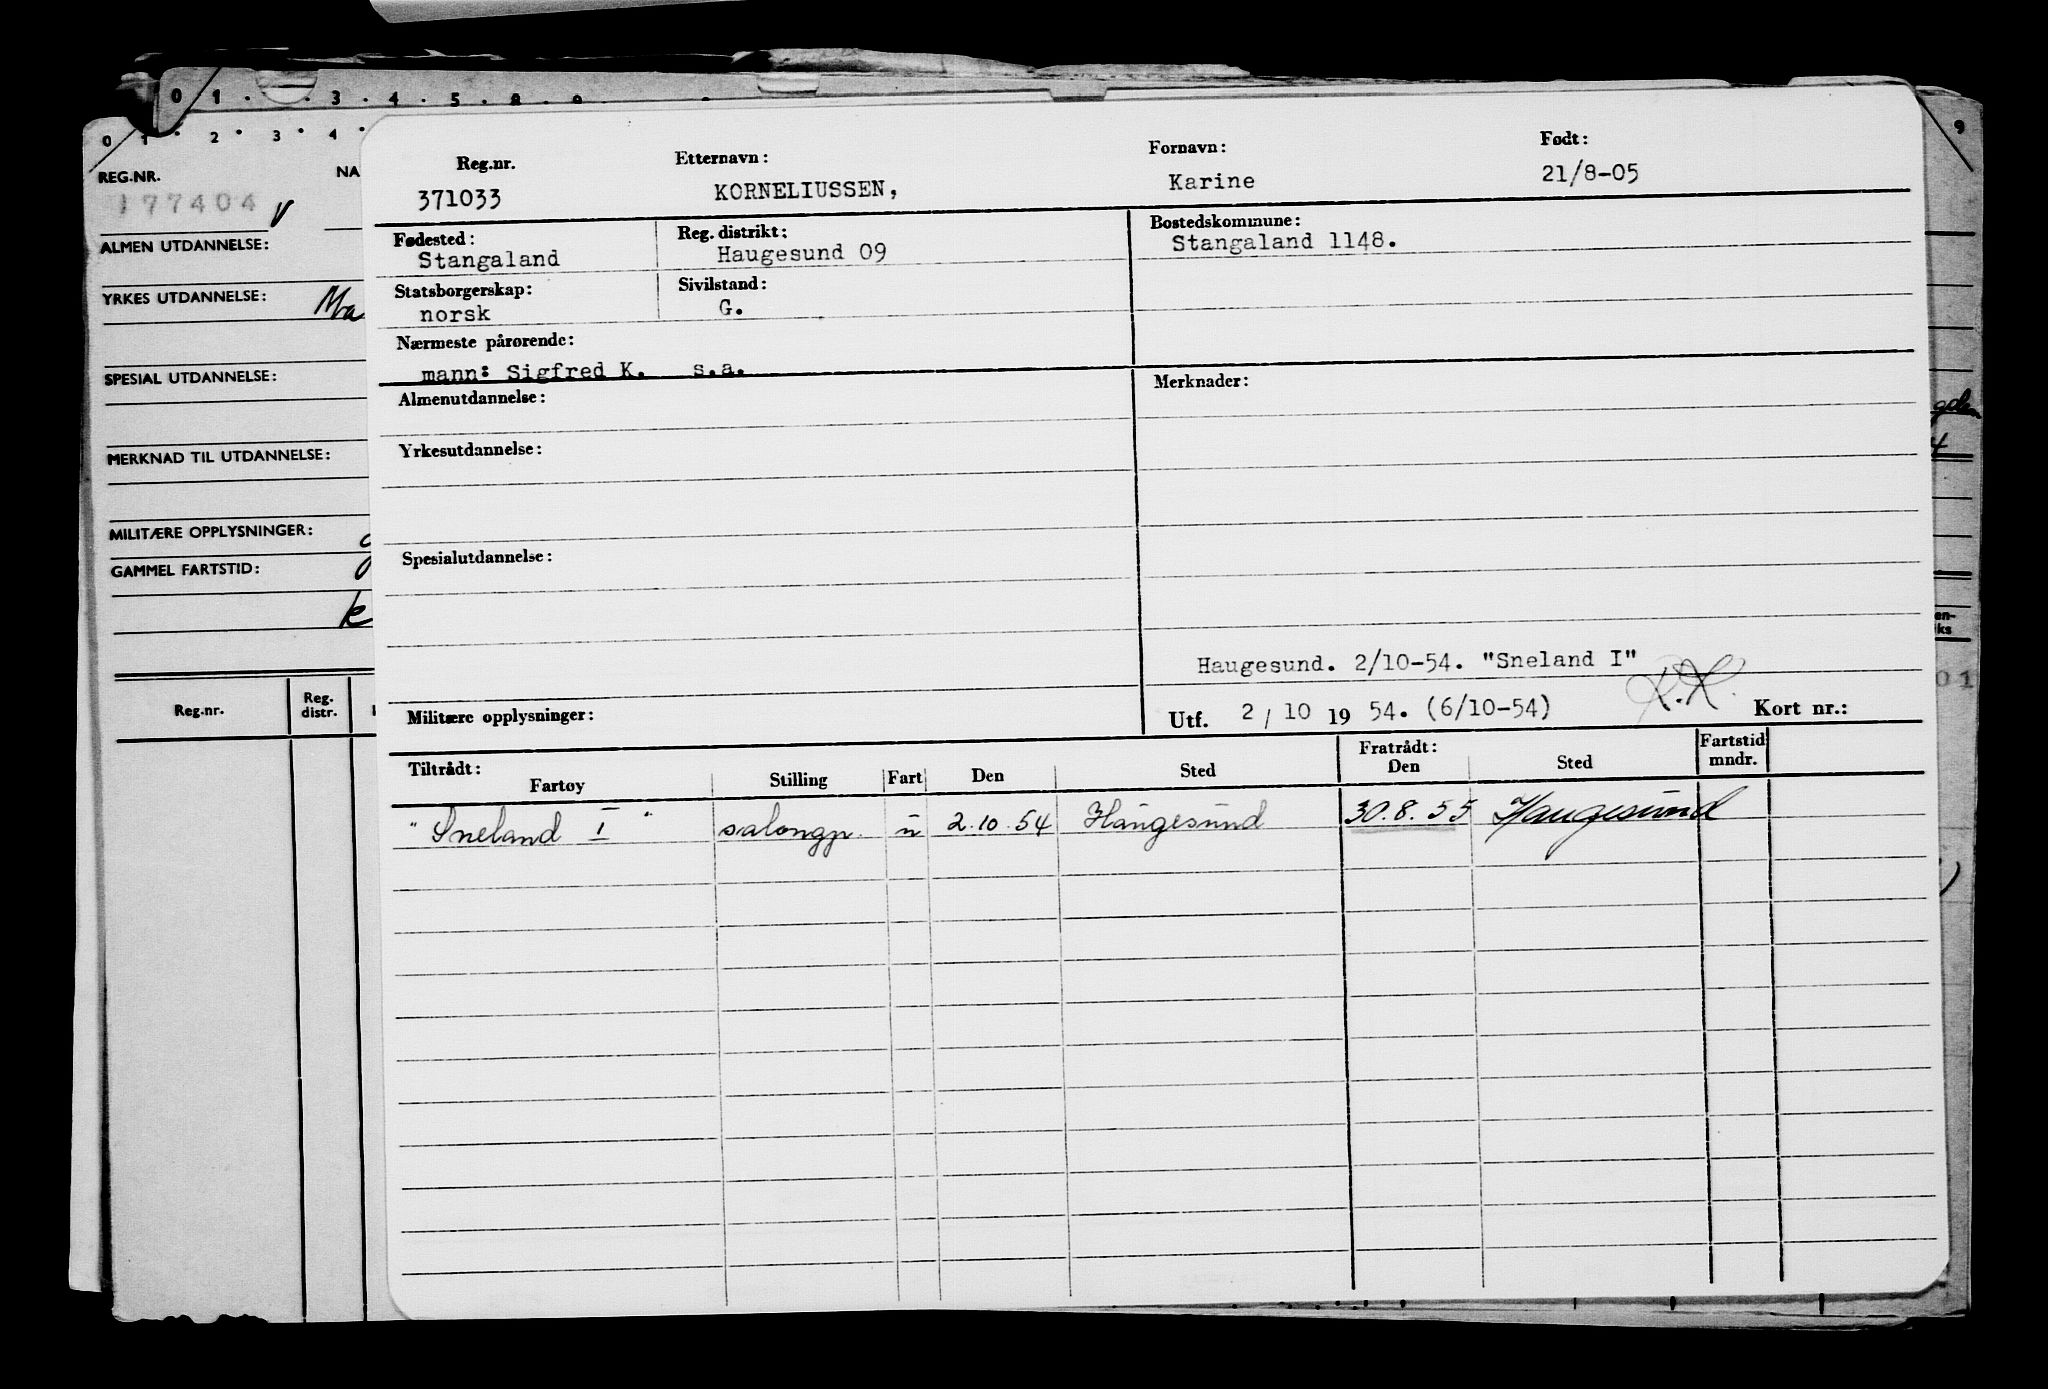 0 1 . . 3 . 4 . 5 . 8 . 9
0 1 . 2 . 3 . 4 .
9
REG.NR. NA
177404 V
ALMEN UTDANNELSE:
YRKES UTDANNELSE: Ma
SPESIAL UTDANNELSE:
MERKNAD TIL UTDANNELSE:
MILITÆRE OPPLYSNINGER:
GAMMEL FARTSTID:
k
Reg.nr. Reg. distr.
Reg.nr. Etternavn: Fornavn: Født:
371033 KORNELIUSSEN, Karine 21/8-05
Fødested: Reg. distrikt: Bostedskommune:
Stangaland Haugesund 09 Stangaland 1148.
Statsborgerskap: Sivilstand:
norsk G.
Nærmeste pårørende:
mann: Sigfred K. s.a.
Almenutdannelse: Merknader:
Yrkesutdannelse:
Spesialutdannelse:
Haugesund. 2/10-54. "Sneland I"
Militære opplysninger: Utf. 2 / 10 19 54. (6/10-54) Kort nr.:
Tiltrådt: Fratrådt:
Fartøy Stilling Fart Den Sted Den Sted Fartstid mndr.
"Sneland I" salongp. u 2.10.54 Haugesund 30.8.55 Haugesund
en-
iks
01